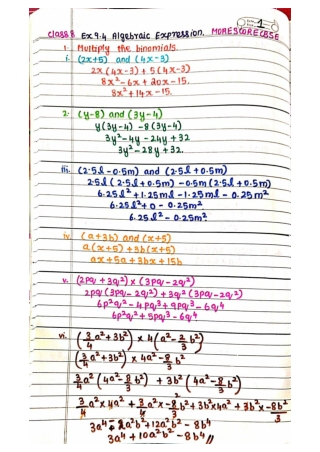 1
Class 8 Ex 9.4 Algebraic Expression. MOMESCORECBSE
1. Multiply the binomials.
i. (2x+5) and (4x-3)
2x(4x-3) + 5(4x-3)
8x²-6x + 20x-15.
8x²+14x-15.
2. (y-8) and (3y-4)
y(3y-4) -8(3y-4)
3y²-4y -24y +32
3y²-28y+32.
iii. (2.5l-0.5m) and (2.5l+0.5m)
2.5l(2.5l+0.5m) -0.5m(2.5l+0.5m)
6.25l²+1.25ml-1.25ml - 0.25m²
6.25l²+0 - 0.25m².
6.25l² - 0.25m²
iv (a+3b) and (x+5)
a(x+5) +3b(x+5)
ax+5a+3bx+15b
v. (2pq+3q²) x (3pq-2q²)
2pq(3pq-2q²) + 3q²(3pq-2q²)
6p²q² - 4pq³+9pq³ - 6q⁴
6p²q² + 5pq³ - 6q⁴
vi. (3/4 a²+3b²) x 4(a²-2/3 b²)
(3/4 a²+3b²) x 4a²-8/3 b²
3/4 a²(4a²-8/3 b²) + 3b²(4a²-8/3 b²)
3/4 a² x 4a² + 3/4 a² x -8/3 b² + 3b² x 4a² + 3b² x -8b²/3
3a⁴ - 2a²b²+12a²b² - 8b⁴
3a⁴ + 10a²b² - 8b⁴//